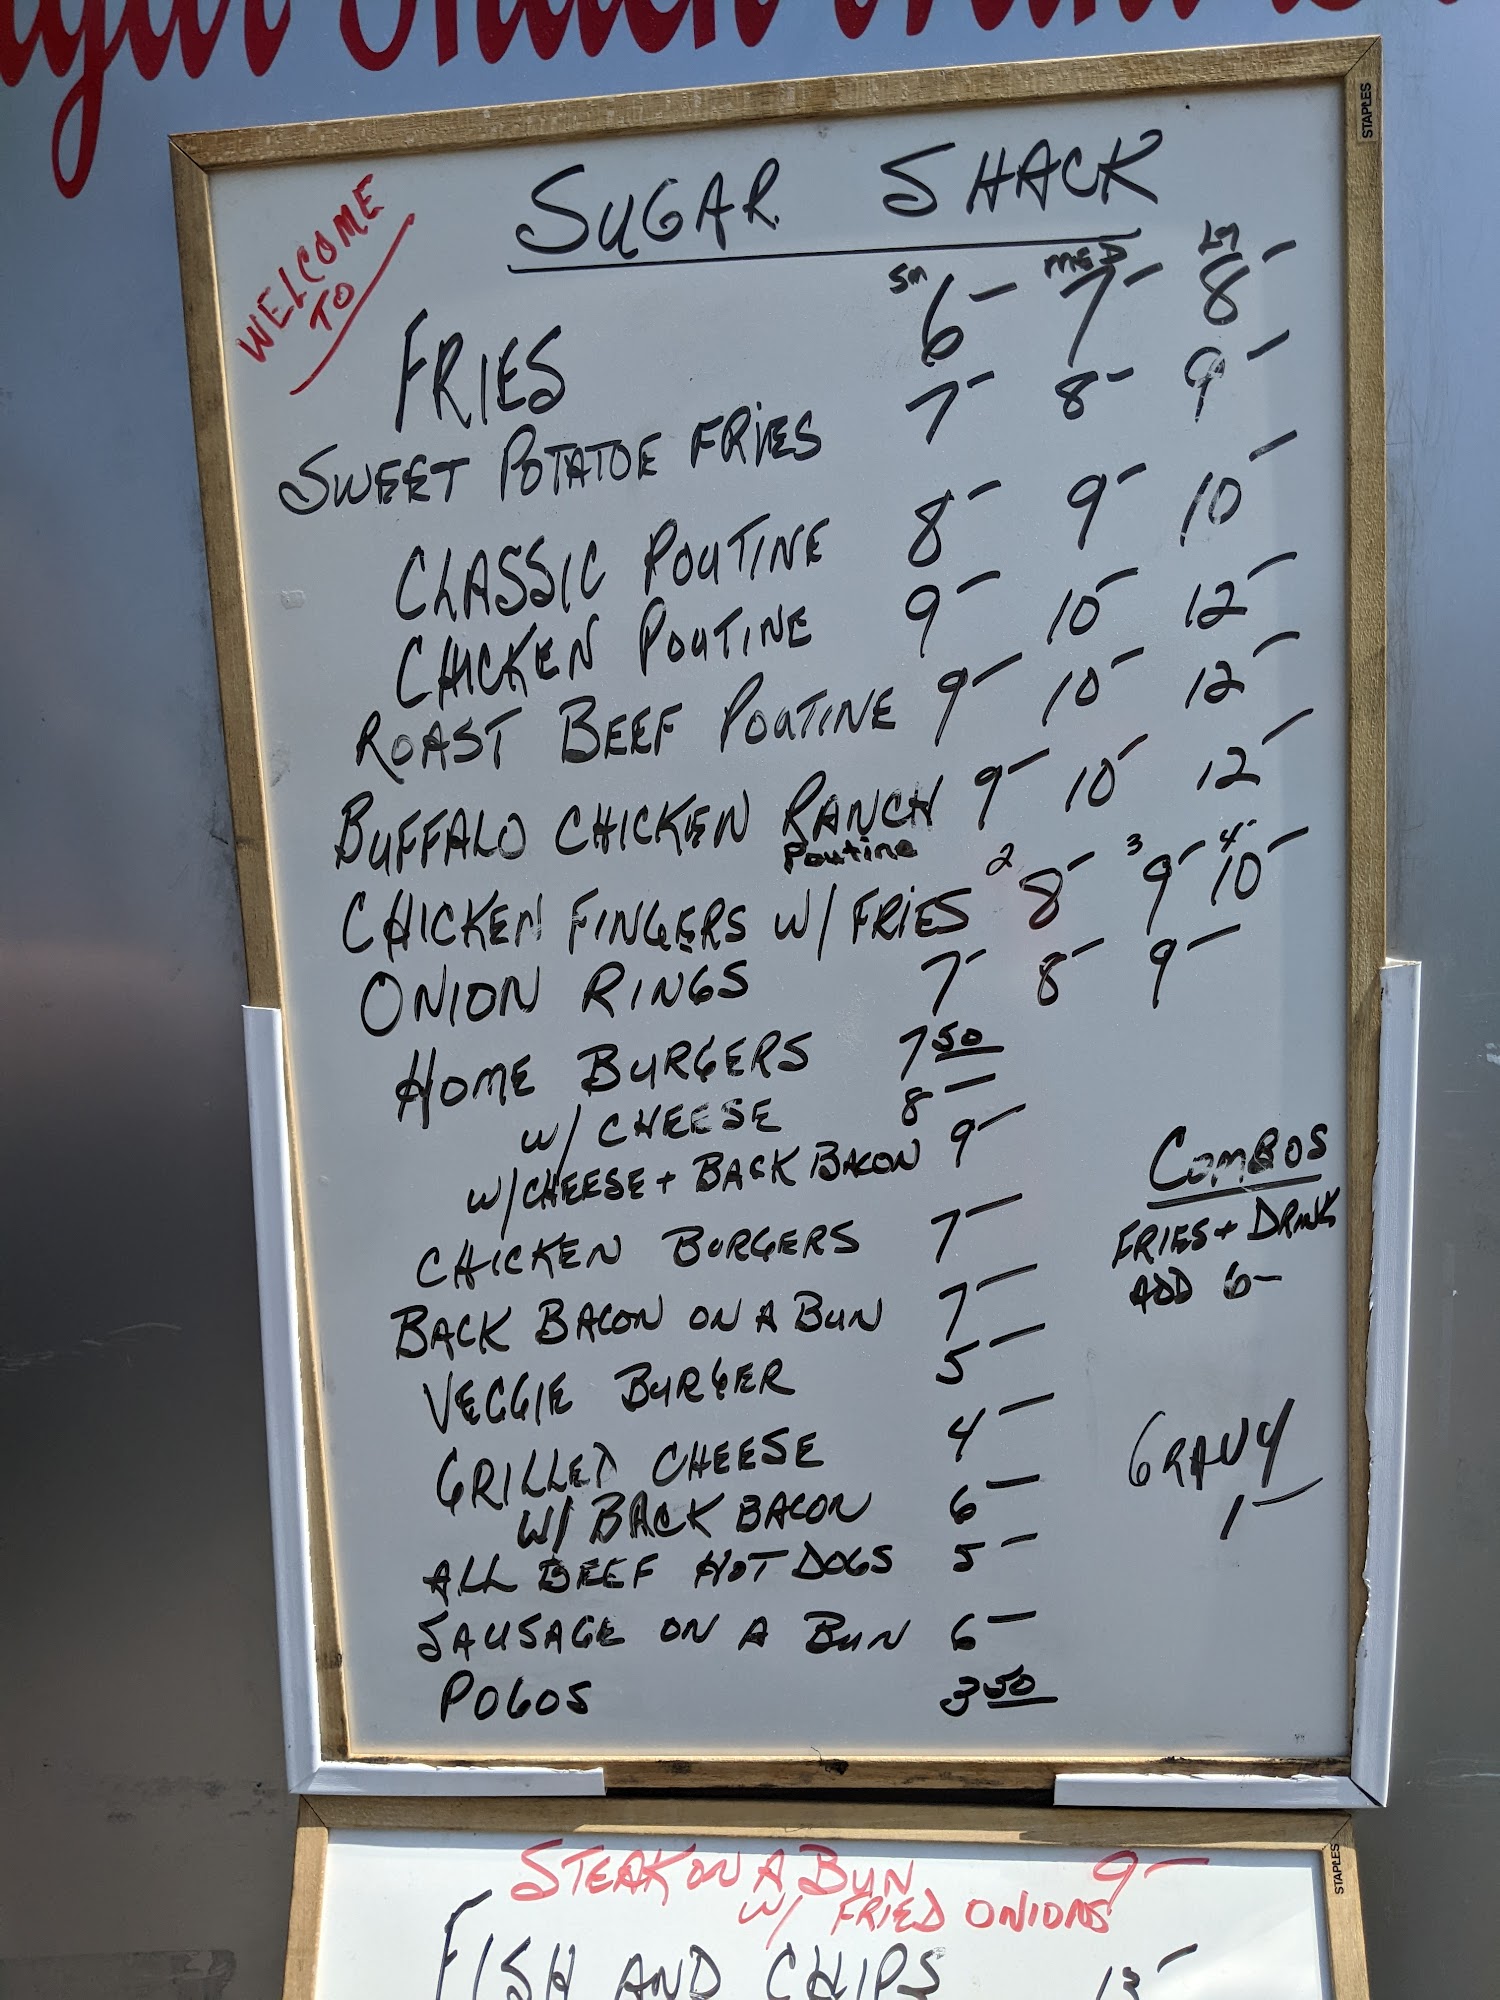 WELCOME
TO
SUGAR SHACK
Sm MED LG
FRIES 6- 7- 8-
SWEET POTATOE FRIES 7- 8- 9-
CLASSIC POUTINE 8- 9- 10-
CHICKEN POUTINE 9- 10- 12-
ROAST BEEF POUTINE 9- 10- 12-
BUFFALO CHICKEN RANCH 9- 10- 12-
Poutine
CHICKEN FINGERS W/ FRIES 2 8- 3 9- 4 10-
ONION RINGS 7- 8- 9-
HOME BURGERS 7 50
W/ CHEESE 8-
W/ CHEESE + BACK BACON 9-
CHICKEN BURGERS 7-
BACK BACON ON A BUN 7-
VEGGIE BURGER 5-
GRILLED CHEESE 4-
W/ BACK BACON 6-
ALL BEEF HOT DOGS 5-
SAUSAGE ON A BUN 6-
POGOS 3 50
COMBOS
FRIES + DRINK
ADD 6-
GRAVY
1-
STAPLES
STEAK ON A BUN 9-
W/ FRIED ONIONS
FISH AND CHIPS
STAPLES